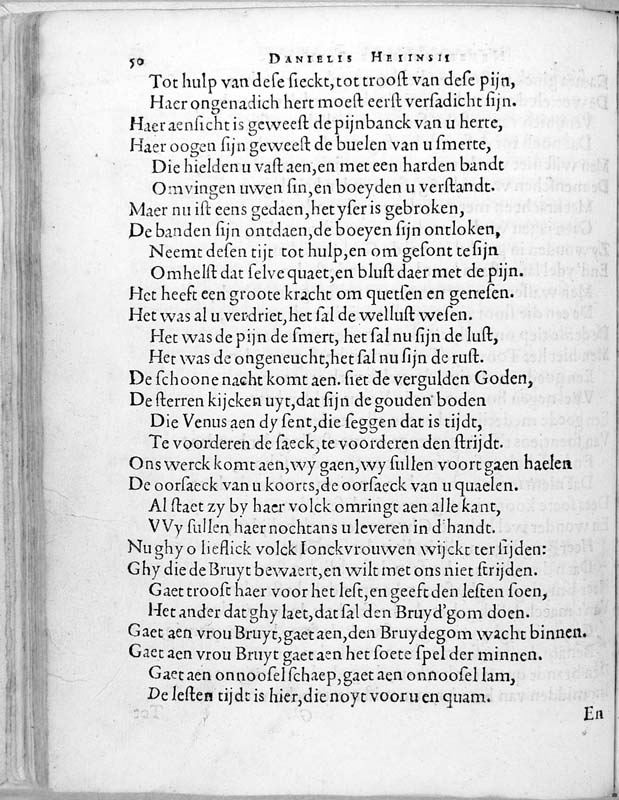 50 DANIELIS HEIINSII
Tot hulp van dese sieckt, tot troost van dese pijn,
Haer ongenadich hert moest eerst versadicht sijn.
Haer aensicht is geweest de pijnbanck van u herte,
Haer oogen sijn geweest de buelen van u smerte,
Die hielden u vast aen, en met een harden bandt
Omvingen uwen sin, en boeyden u verstandt.
Maer nu ist eens gedaen, het yser is gebroken,
De banden sijn ontdaen, de boeyen sijn ontloken,
Neemt desen tijt tot hulp, en om gesont te sijn
Omhelst dat selve quaet, en blust daer met de pijn.
Het heeft een groote kracht om quetsen en genesen.
Het was al u verdriet, het sal de wellust wesen.
Het was de pijn de smert, het sal nu sijn de lust,
Het was de ongeneucht, het sal nu sijn de rust.
De schoone nacht komt aen. siet de vergulden Goden,
De sterren kijcken uyt, dat sijn de gouden boden
Die Venus aen dy sent, die seggen dat is tijdt,
Te voorderen de saeck, te voorderen den strijdt.
Ons werck komt aen, wy gaen, wy sullen voort gaen haelen
De oorsaeck van u koorts, de oorsaeck van u quaelen.
Al staet zy by haer volck omringt aen alle kant,
VVy sullen haer nochtans u leveren in d'handt.
Nu ghy o lieflick volck Ionckvrouwen wijckt ter sijden:
Ghy die de Bruyt bewaert, en wilt met ons niet strijden.
Gaet troost haer voor het lest, en geeft den lesten soen,
Het ander dat ghy laet, dat sal den Bruyd'gom doen.
Gaet aen vrou Bruyt, gaet aen, den Bruydegom wacht binnen.
Gaet aen vrou Bruyt gaet aen het soete spel der minnen.
Gaet aen onnosel schaep, gaet aen onnosel lam,
De lesten tijdt is hier, die noyt voor u en quam.
En